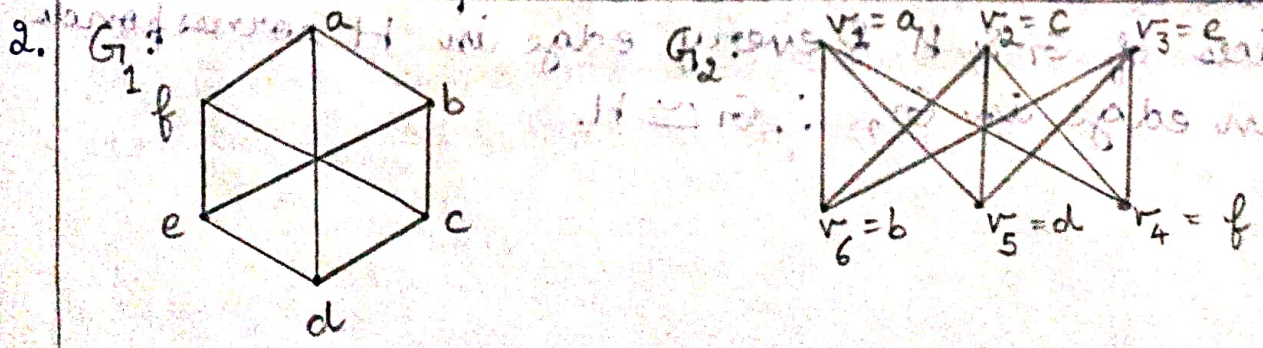 2. G₁: a b c d e f
G₂: v₁=a v₂=c v₃=e
v₆=b v₅=d v₄=f